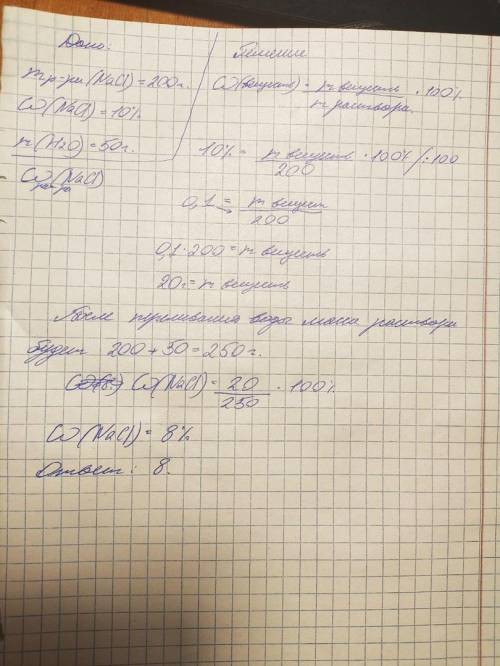 Дано:
m р-ра (NaCl) = 200г.
ω (NaCl) = 10%
m (H2O) = 50г.
ω (NaCl)
р-ра
Решение
ω (веществ) = m веществ / m раствора · 100%
10% = m веществ / 200 · 100% / :100
0,1 = m вещест / 200
0,1 · 200 = m веществ
20г = m веществ
После переливания воды масса раствора
будет 200 + 50 = 250г.
ω (NaCl) = 20 / 250 · 100%
ω (NaCl) = 8%
Ответ: 8.